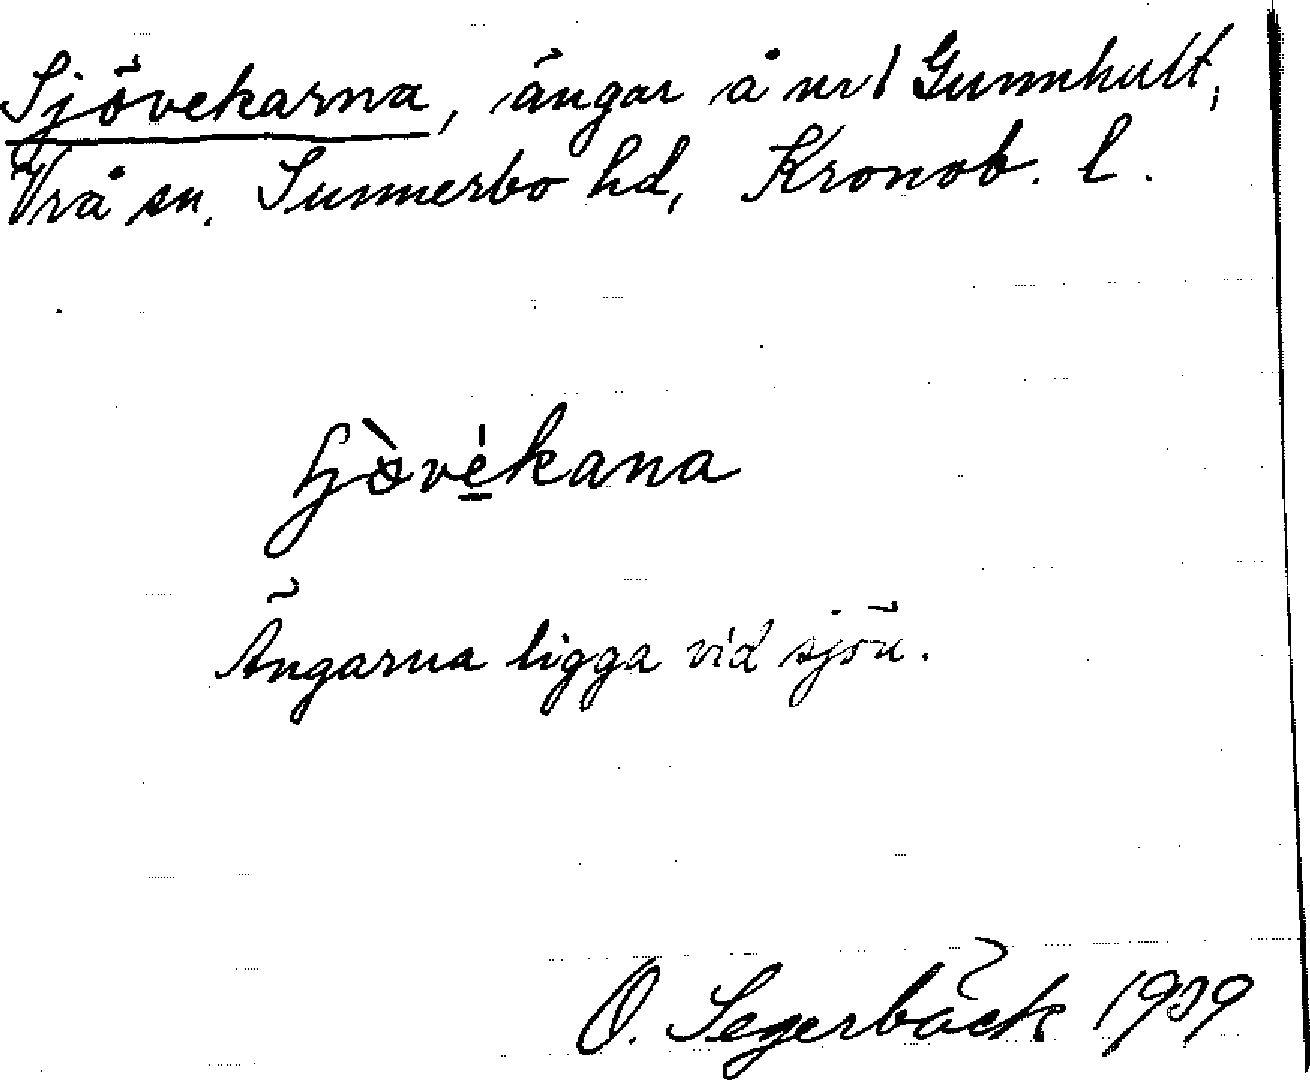 Sjövekarna, ängar å nr 1 Gunnhult,
Vrå sn, Sunnerbo hd, Kronob. l.
Ängarna ligga vid sjön.
O. Segerbäck 1939